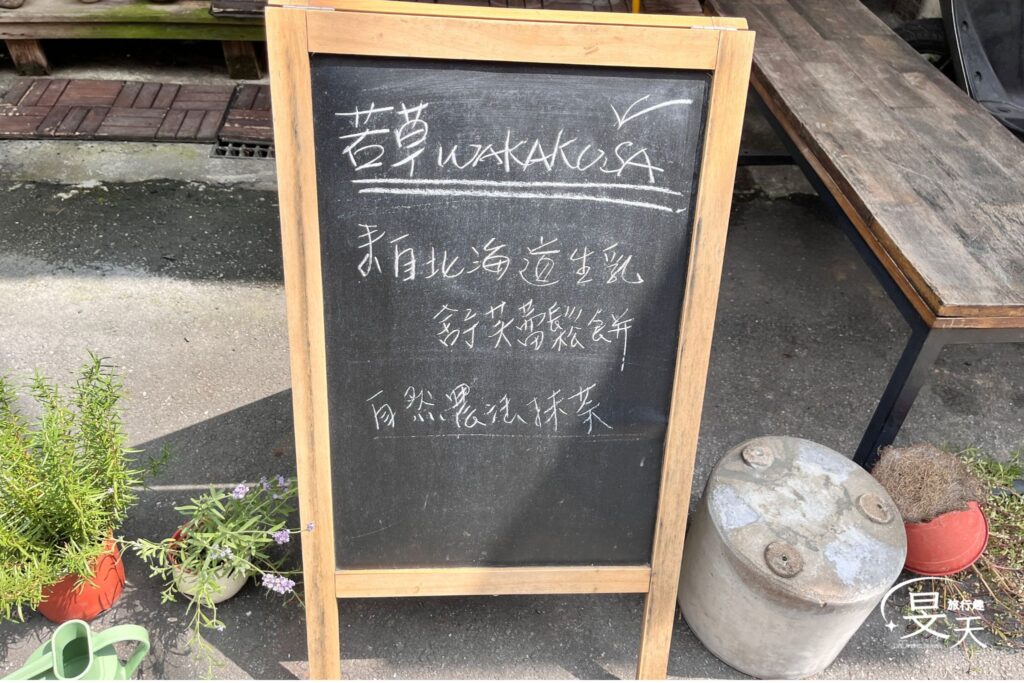 若草 WAKAKUSA
来自北海道生乳
舒芙蕾鬆餅!
自然農法抹茶
旅行趣
旻天